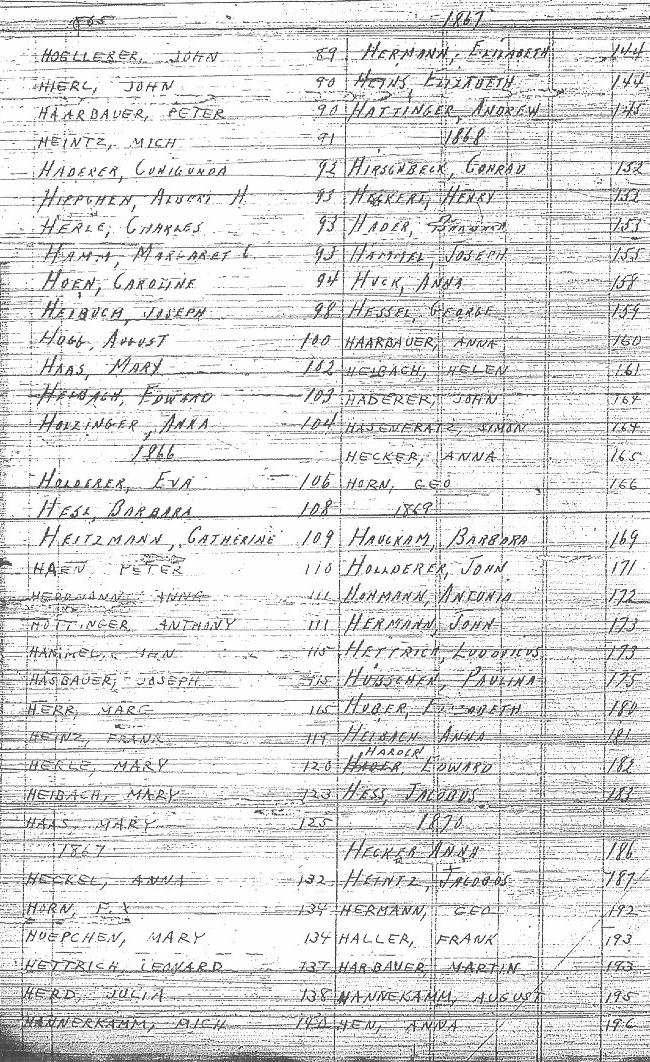 1867
HOELLERER, JOHN 89
HIERL, JOHN 90
HAARBAUER, PETER 90
HEINTZ, MICH 91
HADERER, CUNIGUNDA 92
HIEPCHEN, ALBERT H. 93
HERLE, CHARLES 93
HAMM, MARGARET C. 93
HOEN, CAROLINE 94
HEIBUCH, JOSEPH 98
HOGG, AUGUST 100
HAAS, MARY 102
HEIBACH, EDWARD 103
HOLZINGER, ANNA 104
1866
HOLDERER, EVA 106
HESL, BARBARA 108
HEITZMANN, CATHERINE 109
HAEN PETER 110
HERRMANN, ANNA 111
HOTTINGER ANTHONY 111
HAMMEL, 115
HASBAUER, JOSEPH 115
HERR, MARG 115
HEINZ, FRANK 119
HERLE, MARY 120
HEIBACH, MARY 123
HAAS, MARY 125
1867
HECKEL, ANNA 132
HORN, F. X 134
HUEPCHEN, MARY 134
HETTRICH, LEONARD 137
HERD, JULIA 138
HANNERKAMM, MICH
HERMANN, ELIZABETH 144
HEINS, ELIZABETH 144
HATTINGER, ANDREW 145
1868
HIRSCHBECK, CONRAD 152
HECKERL, HENRY 153
HADER, BARBARA 153
HAMMEL, JOSEPH 155
HUCK, ANNA 158
HESSEL, GEORGE 159
HAARBAUER, ANNA 160
HEIBACH, HELEN 161
HADERER, JOHN 164
HASENFRATZ, SIMON 164
HECKER, ANNA 165
HORN, GEO 166
1869
HAUCKAM, BARBARA 169
HOLLDERER, JOHN 171
HOHMANN, ANTONIA 172
HERMANN, JOHN 173
HETTRICH, LUDOVICUS 173
HUBSCHEN, PAULINA 175
HUBER, ELIZABETH 180
HEIBACH ANNA 181
HARDER
HADER, EDWARD 182
HESS, JACOBUS 183
1870
HECKER ANNA 186
HEINTZ, JACOBUS 187
HERMANN, GEO 192
HALLER, FRANK 193
HARBAUER, MARTIN 193
HANNEKAMM, AUGUST 195
HEN, ANNA 196